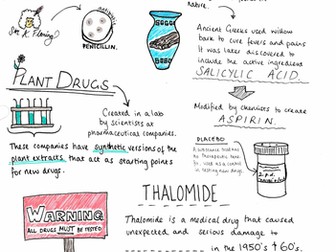 Sir A Fleming
antibiotic
PENICILLIN.
Ancient Greeks used willow
bark to cure fevers and pains
It was later discovered to
include the active ingredient
SALICYLIC ACID.
PLANT DRUGS
Created in a lab
by scientists at
pharmaceutical companies.
These companies have synthetic versions of the
plant extracts that act as starting points
for new drugs.
Modified by chemists to create
ASPIRIN.
PLACEBO
WARNING
ALL DRUGS MUST BE TESTED
THALOMIDE
Thalomide is a medical drug that caused
unexpected and serious damage to
in the 1950's + 60's.